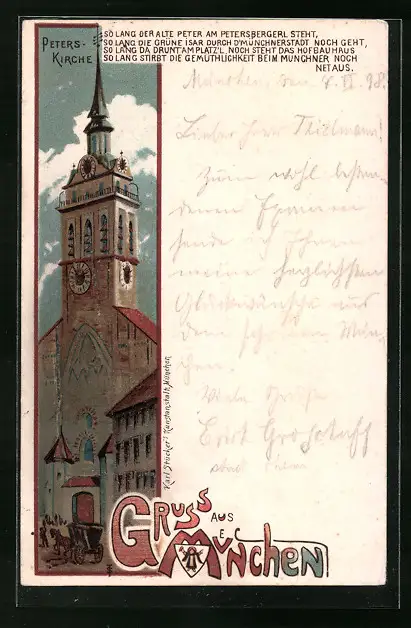 SO LANG DER ALTE PETER AM PETERSBERGERL STEHT,
SO LANG DIE GRÜNE ISAR DURCH D'MÜNCHNERSTADT NOCH GEHT,
SO LANG DA DRUNT AM PLATZ'L NOCH STEHT DAS HOFBRÄUHAUS
SO LANG STIRBT DIE GEMÜTHLICHKEIT BEIM MÜNCHNER NOCH
NET AUS.
PETERS-
KIRCHE
München, den 4. VI. 98.
Lieber Herr
Zum wohl bestan-
denen Examen
sende ich Ihnen
meine herzlichsten
Glückwünsche aus
dem schönen Mün-
chen.
Viele Grüße
Karl Stücker's Kunstanstalt, München
GRUSS AUS
MÜNCHEN